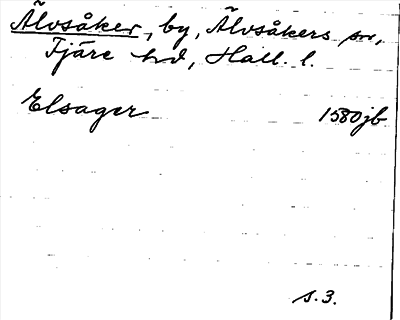 Älvsåker, by, Älvsåkers sn,
Fjäre hd, Hall. l.
Elsager 1580 jb
s. 3.